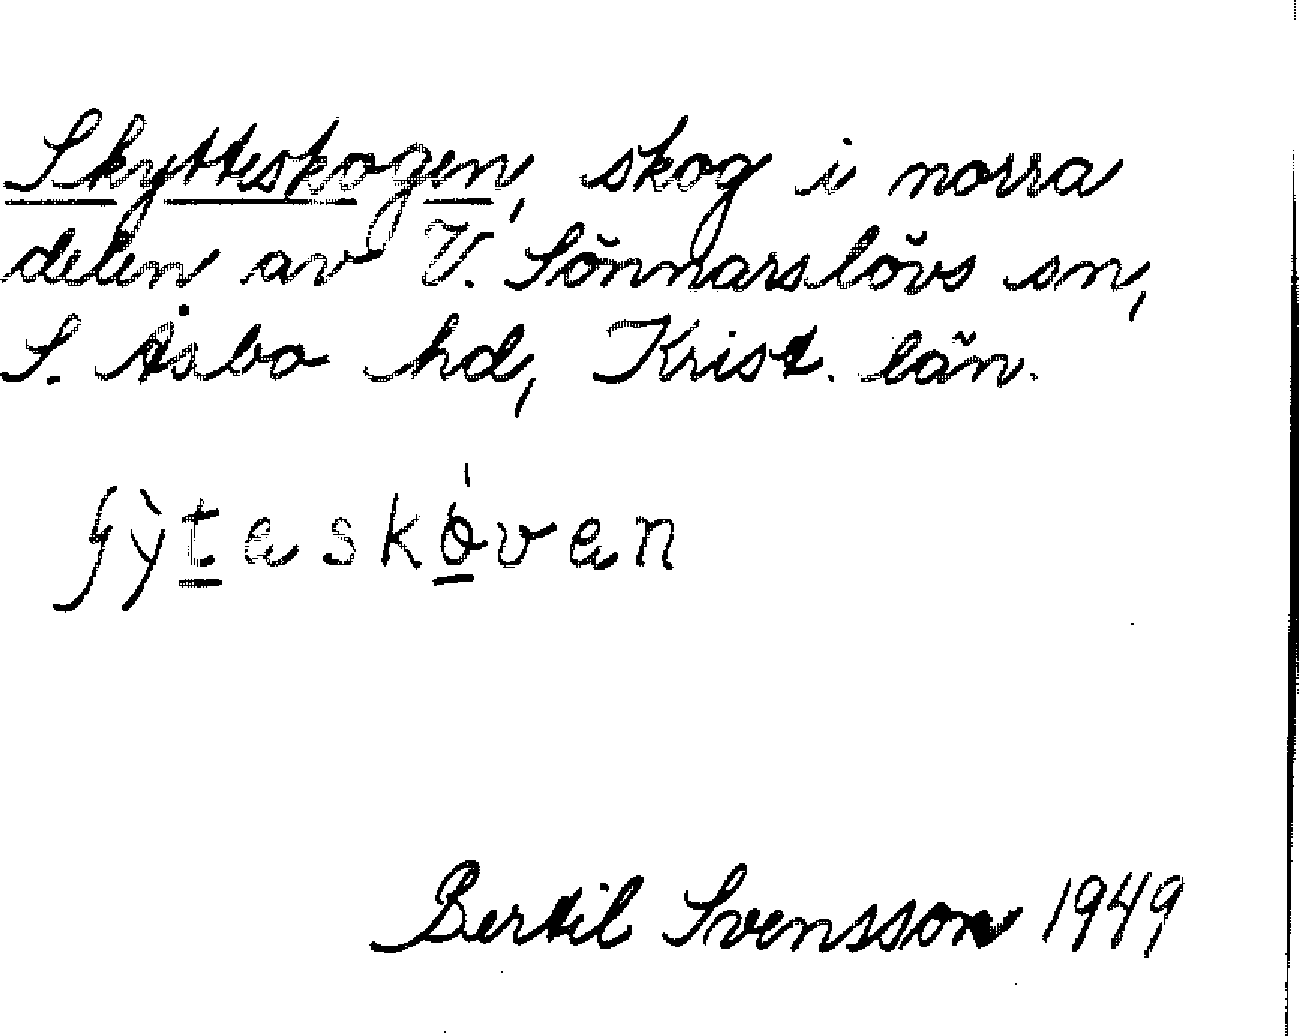 Skytteskogen, skog i norra
delen av V. Sönnarslövs sn,
S. Åsbo hd, Krist. län.
ʃỳt̠asko̠van
Bertil Svensson 1949